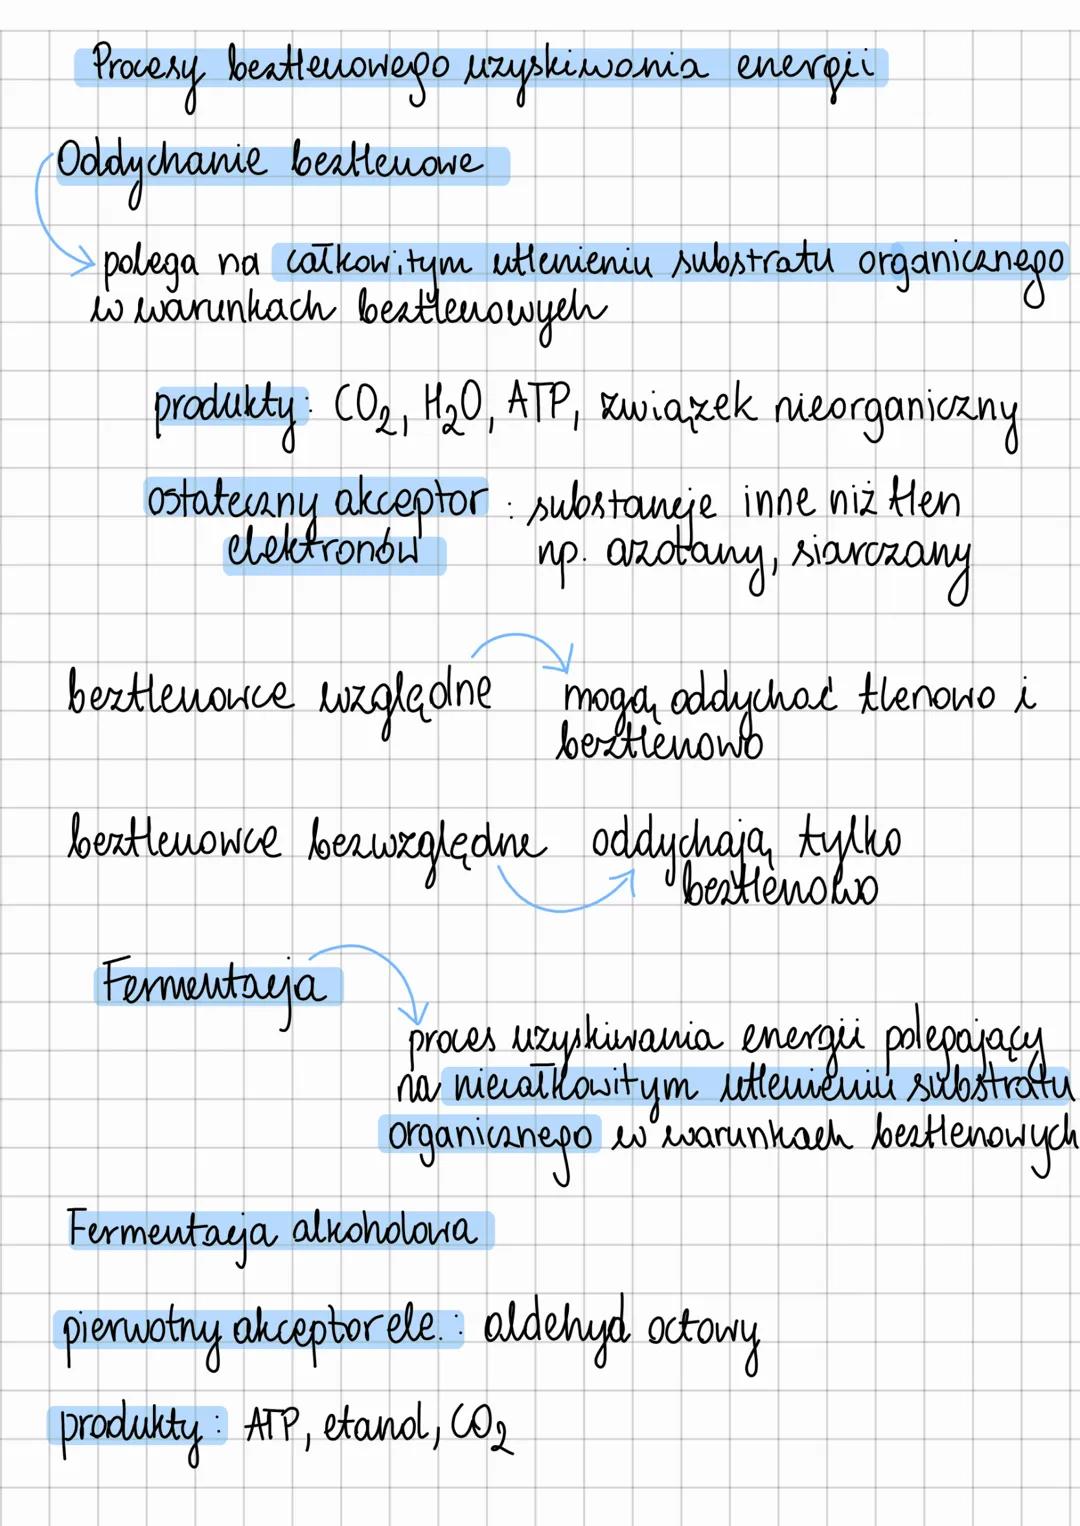 Procesy beztlenowego uzyskiwania energii
Oddychanie beztlenowe
polega na całkowitym utlenieniu substratu organicznego
w warunkach beztlenowych
produkty: CO₂, H₂O, ATP, związek nieorganiczny
ostateczny akceptor : substancje inne niż tlen
elektronów np. azotany, siarczany
beztlenowce względne mogą oddychać tlenowo i
beztlenowo
beztlenowce bezwzględne oddychają tylko
beztlenowo
Fermentacja
proces uzyskiwania energii polegający
na niecałkowitym utlenieniu substratu
organicznego w warunkach beztlenowych
Fermentacja alkoholowa
pierwotny akceptor ele.: aldehyd octowy
produkty: ATP, etanol, CO₂